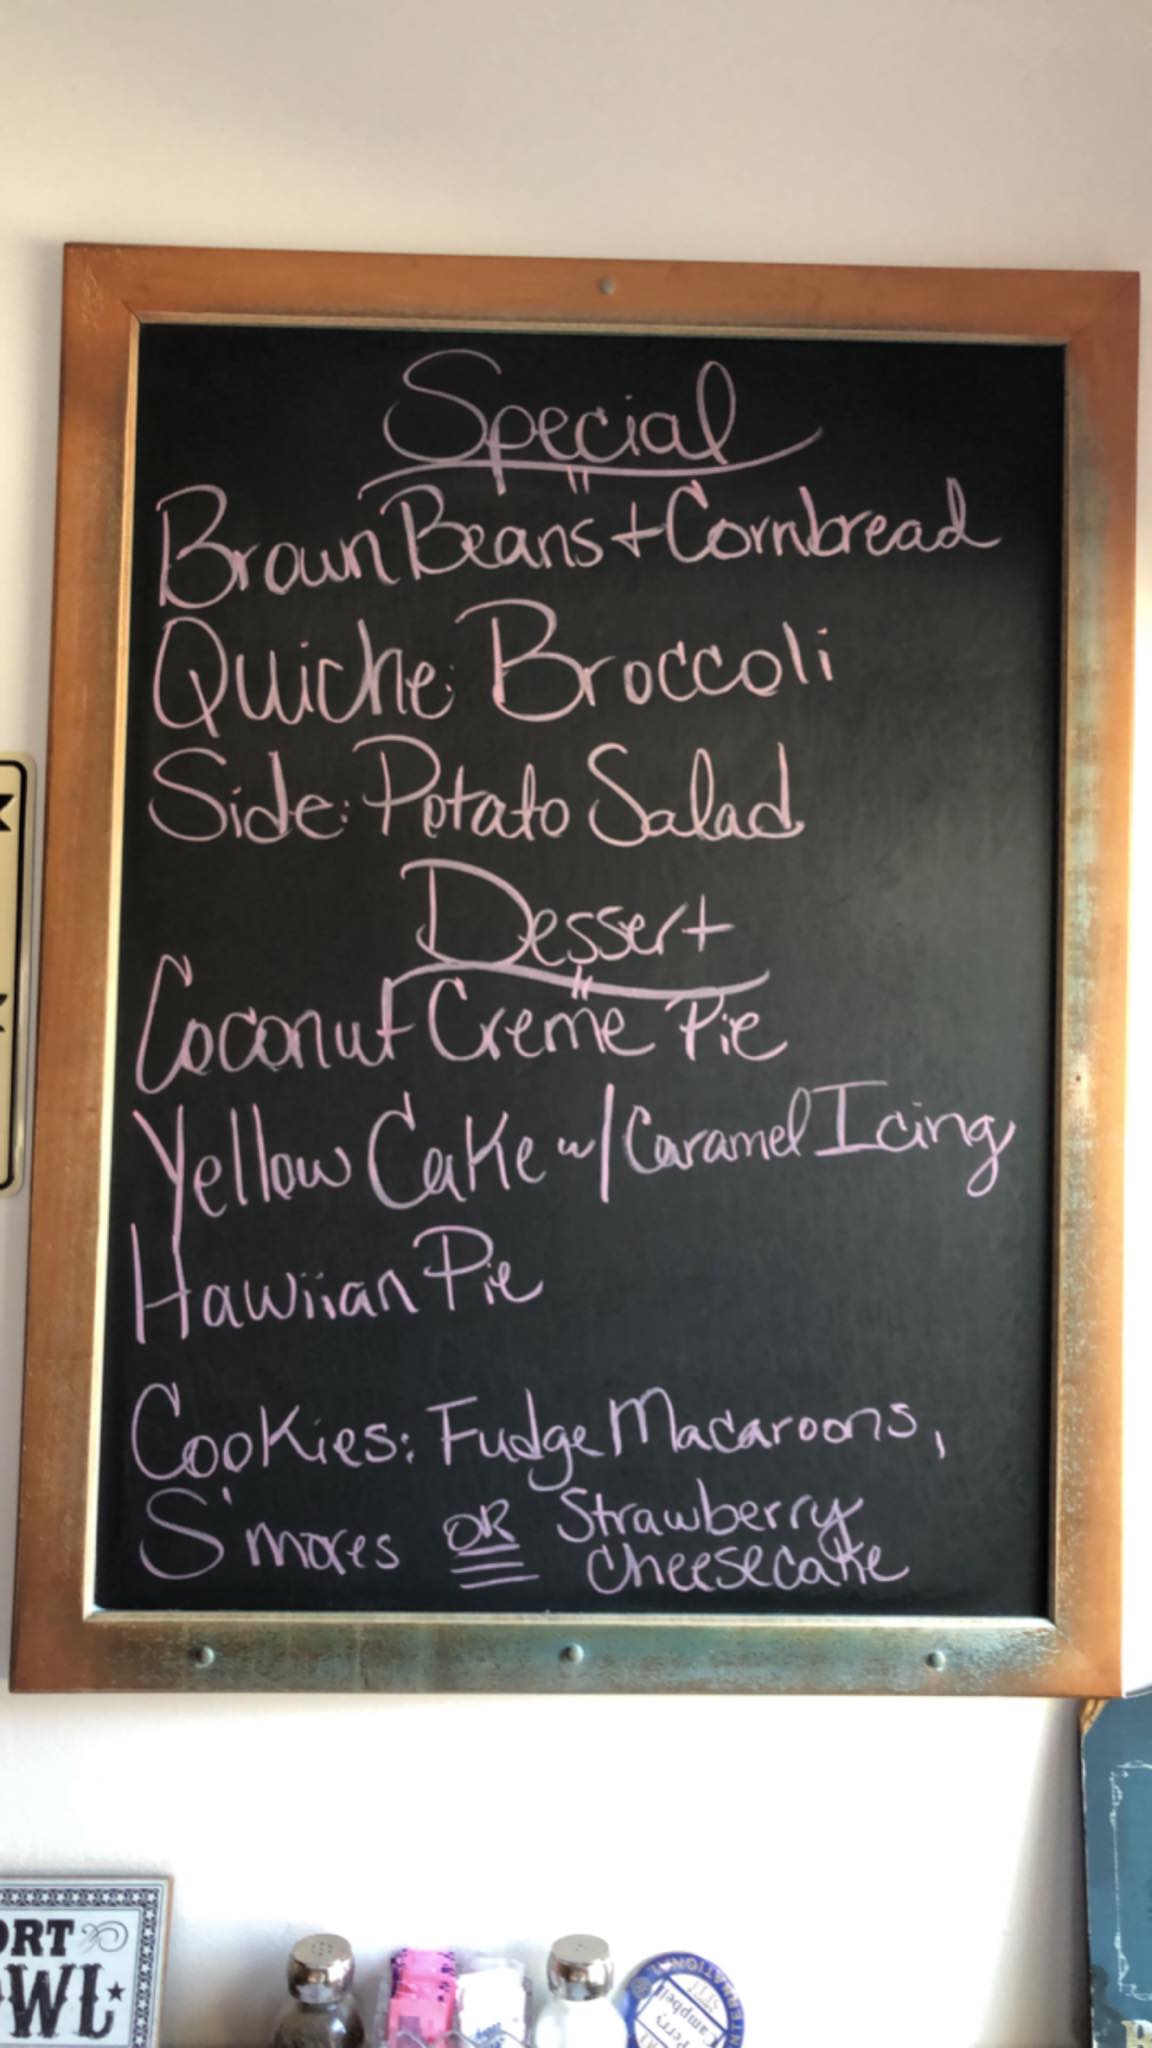 Special
Brown Beans + Cornbread
Quiche: Broccoli
Side: Potato Salad
Dessert
Coconut Creme Pie
Yellow Cake w/ Caramel Icing
Hawiian Pie
Cookies: Fudge Macaroons,
S'mores OR Strawberry
Cheesecake
ORT
OWL
Perry
Campbell